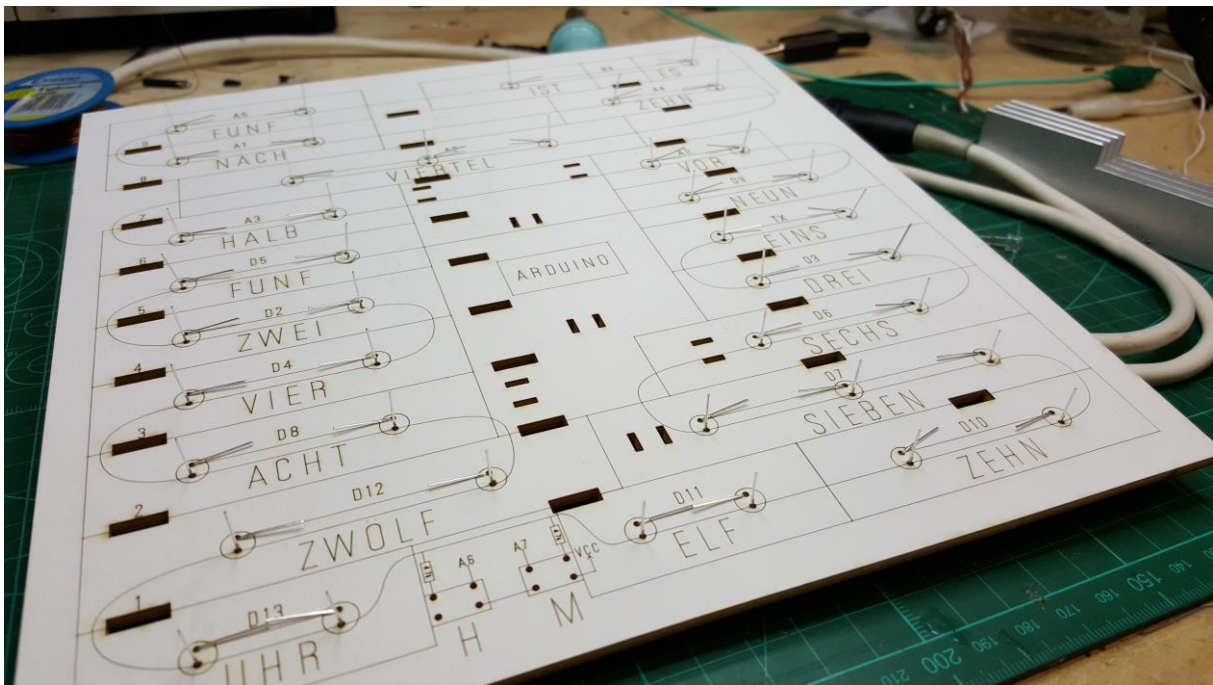 IST
RX
ES
A5
FUNF
A4
ZEHN
9
A1
NACH
VIERTEL
VOR
8
D9
NEUN
7
A3
HALB
TX
EINS
6
D5
FUNF
ARDUINO
D3
DREI
5
D2
ZWEI
D6
SECHS
4
D4
VIER
D7
SIEBEN
3
D8
ACHT
D10
ZEHN
2
D12
ZWOLF
D11
ELF
1
D13
UHR
A6
H
A7
M
VCC
140
150
160
170
180
190
200
210